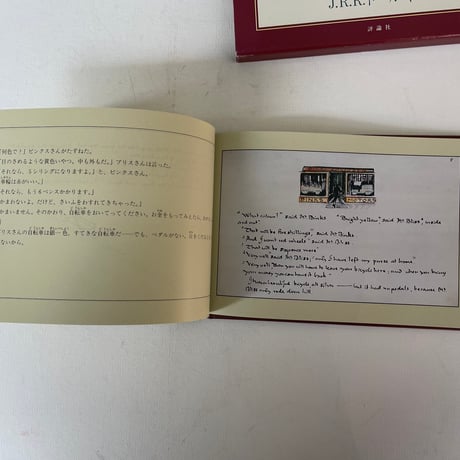 J.R.R.トールキ
評論社
何色で！」ビンクスさんがたずねた。
目のさめるような黄色いやつ。中も外もだ。」ブリスさんは言った。
それなら、5シリングになりますよ。」と、ビンクスさん。
車輪は赤がいい。」
それなら、もう6ペンスかかります。」
かまわないよ。だけど、さいふをおすれてきちゃった。」
かまいません。そのかわり、自転車をおいてってください。お金をもってみえたら、
リスさんの自転車は銀一色。すてきな自転車だ——でも、ペダルがない。
ないから。
"What colour?" said Mr Binks "Bright yellow," said Mr Bliss, "inside
and out"
"That will be five shillings", said Mr Binks
"And I want red wheels" said Mr Bliss.
"That will be sixpence more"
"Very well" said Mr Bliss; "only I have left my purse at home"
"Very well: then you will have to leave your bicycle here; and when you bring
your money you can have it back"
It was a beautiful bicycle, all silver — but it had no pedals, because Mr
Bliss only rode down hill.